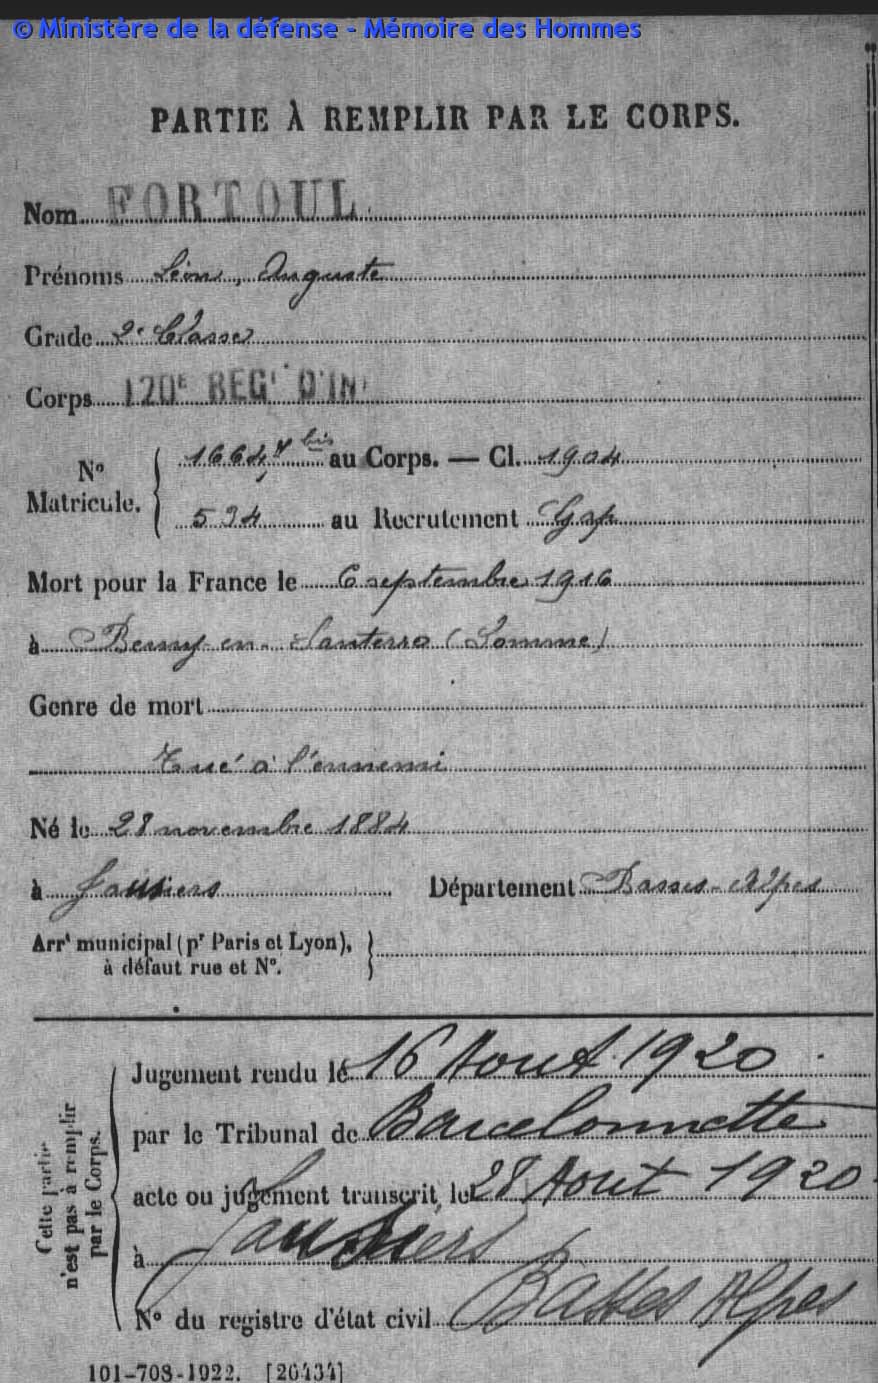 © Ministère de la défense - Mémoire des Hommes
PARTIE À REMPLIR PAR LE CORPS.
Nom FORTOUL
Prénoms Léon, Auguste
Grade 2e Classe
Corps 120E REGt D'INf
N° Matricule. { 16647 bis au Corps. — Cl. 1904
534 au Recrutement Gap
Mort pour la France le 6 septembre 1916
à Berny-en-Santerre (Somme)
Genre de mort
Tué à l'ennemi
Né le 28 novembre 1884
à Jausiers Département Basses-Alpes
Arrt municipal (pr Paris et Lyon),
à défaut rue et N°.
Cette partie
n'est pas à remplir
par le Corps.
Jugement rendu le 16 Aout 1920
par le Tribunal de Barcelonnette
acte ou jugement transcrit le 28 Aout 1920
à Jausiers
N° du registre d'état civil Basses Alpes
101-708-1922. [26434]